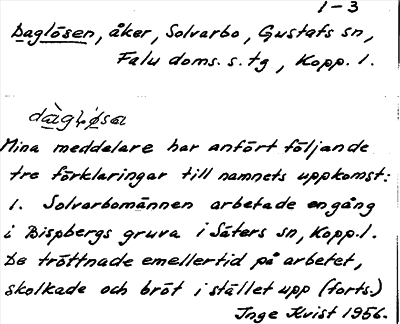 1-3
Daglösen, åker, Solvarbo, Gustafs sn,
Falu doms. s. tg, Kopp. l.
Mina meddelare har anfört följande
tre förklaringar till namnets uppkomst:
1. Solvarbomännen arbetade en gång
i Bispbergs gruva i Säters sn, Kopp. l.
De tröttnade emellertid på arbetet,
skolkade och bröt i stället upp (forts.)
Inge Kvist 1956.